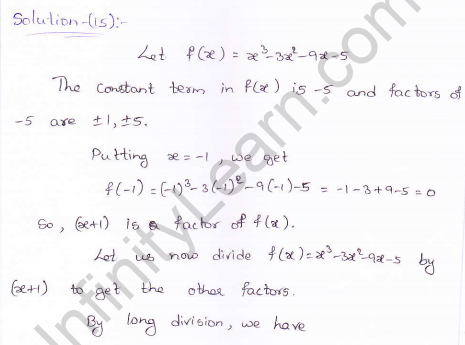 Solution-(15):-
Let f(x) = x³-3x²-9x-5
The constant term in f(x) is -5 and factors of
-5 are ±1, ±5.
Putting x = -1, we get
f(-1) = (-1)³-3(-1)²-9(-1)-5 = -1-3+9-5=0
So, (x+1) is a factor of f(x).
Let us now divide f(x)=x³-3x²-9x-5 by
(x+1) to get the other factors.
By long division, we have
InfinityLearn.com